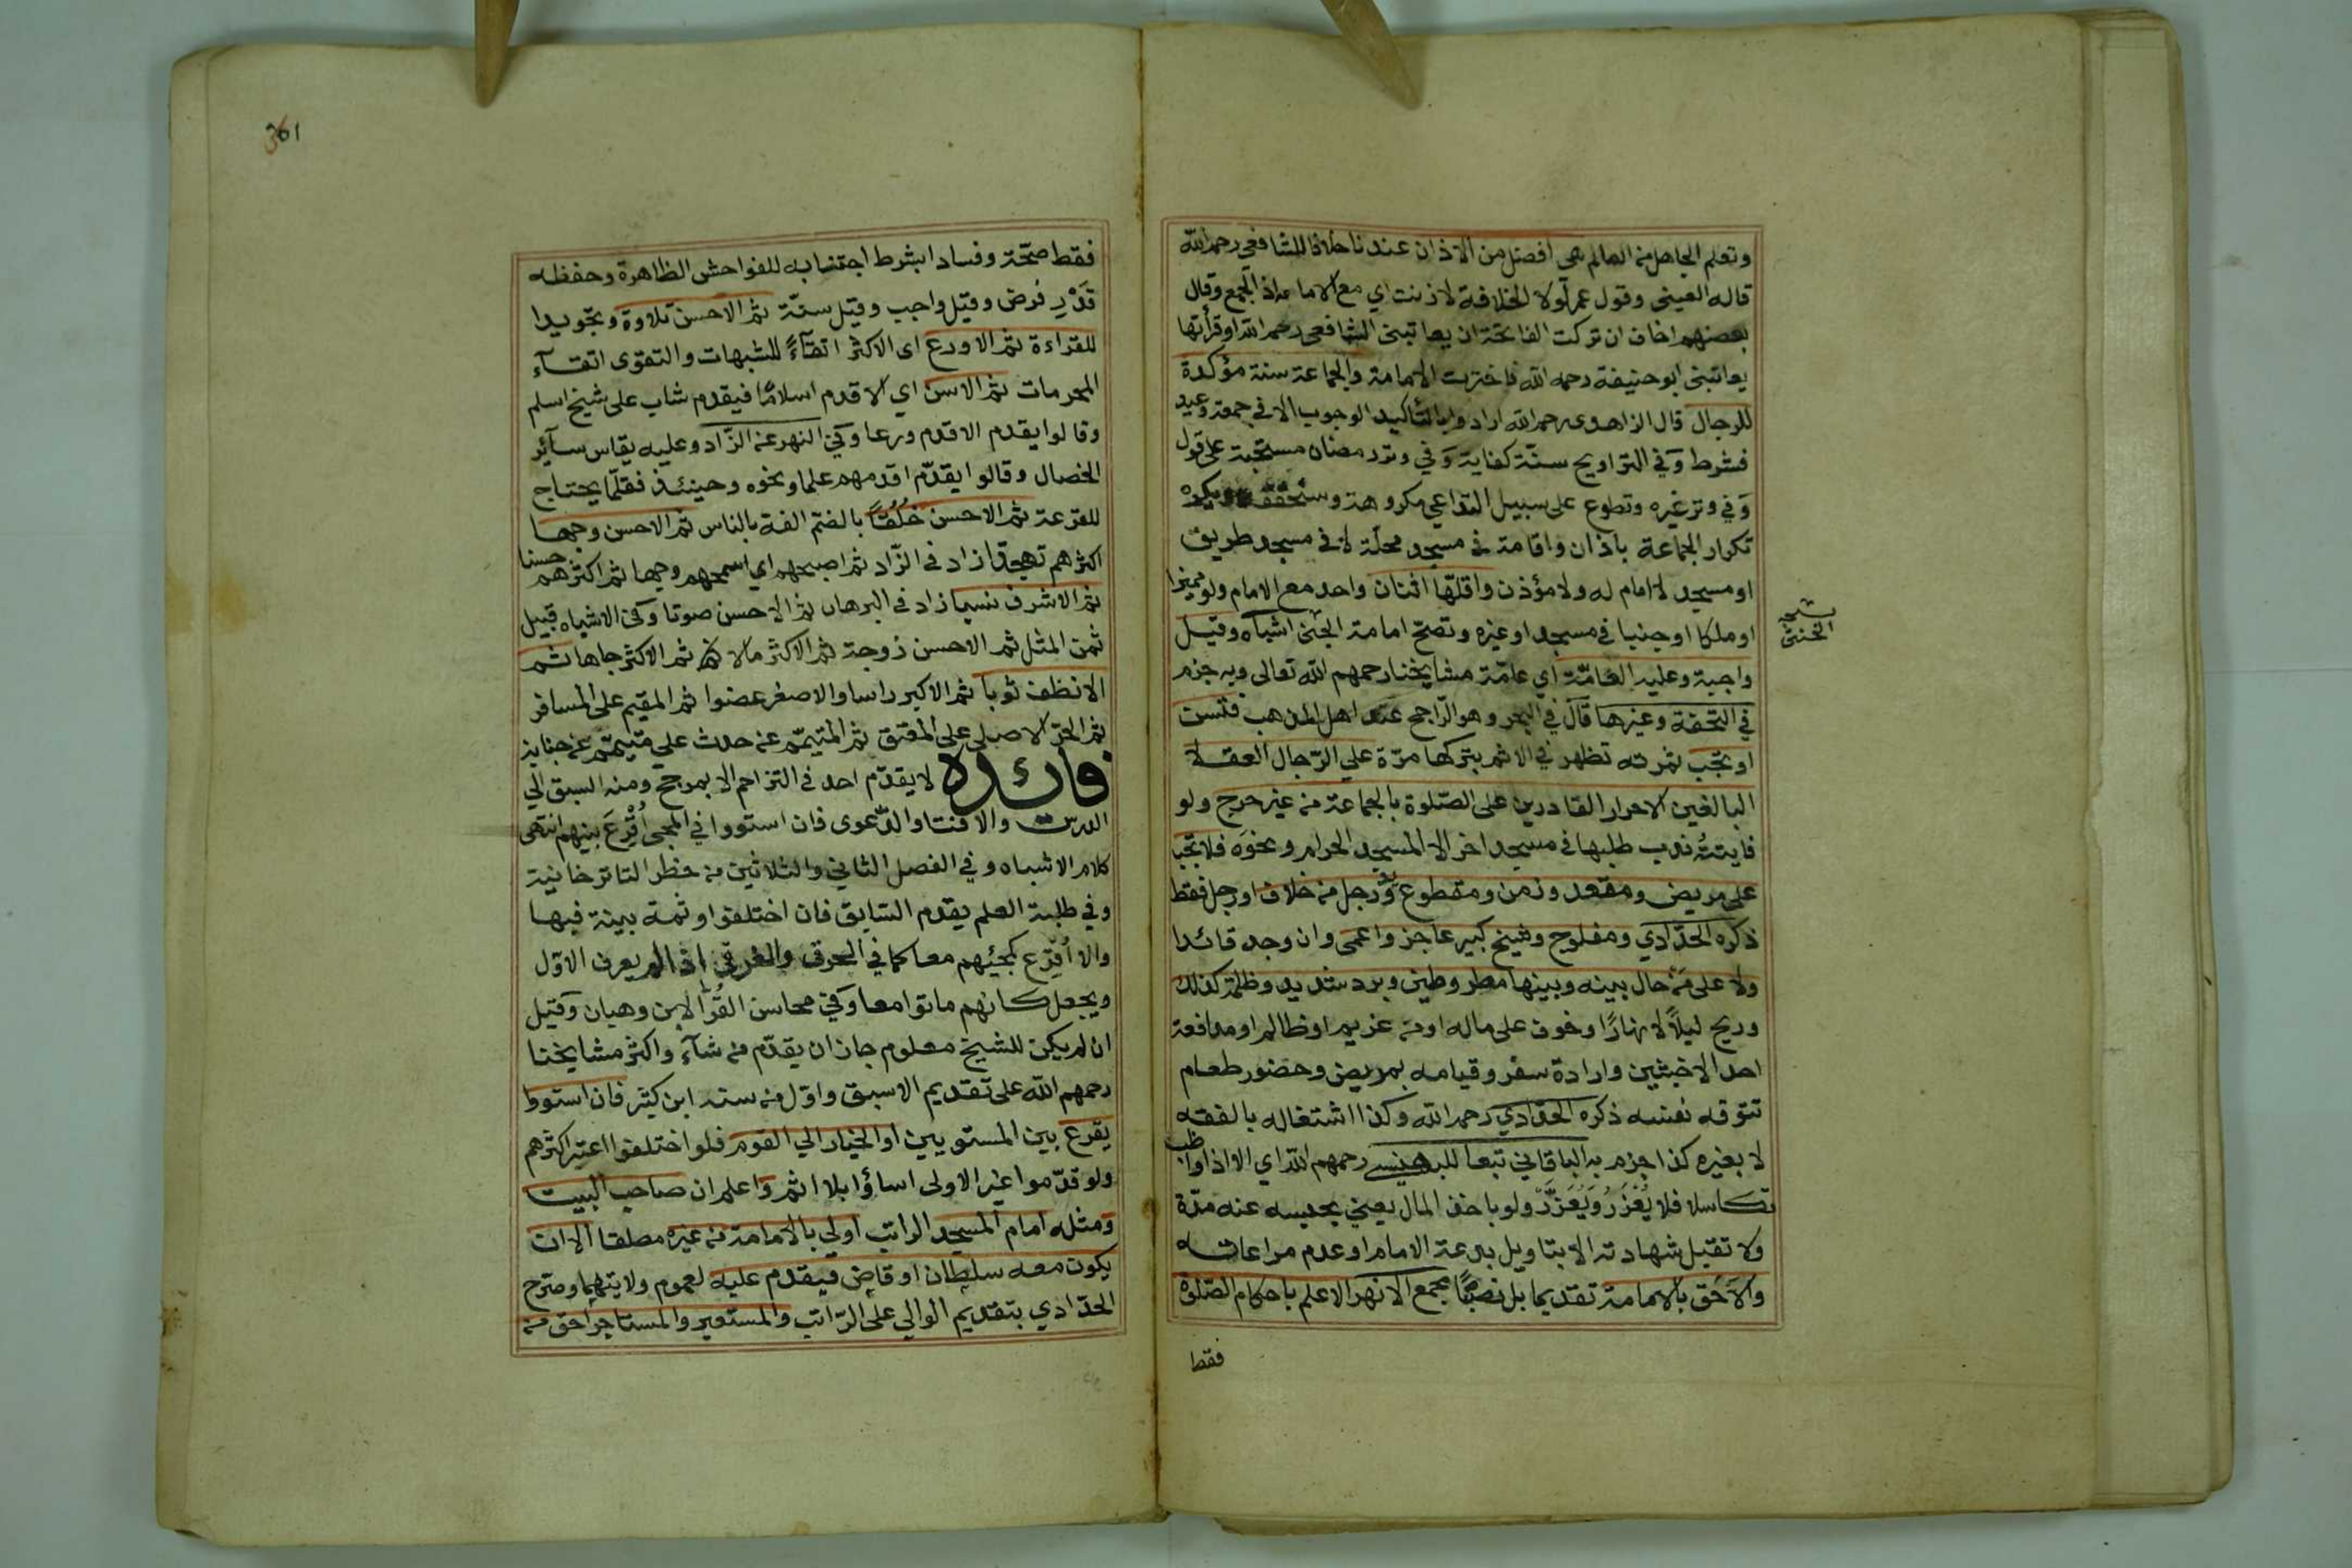 وتعلم الجاهل من العالم هى أفضل من الاذان عندنا خلافا للشافعى رحمه الله
قاله العينى وقول عمر لولا الخلافة لاذنت اي مع الامامة اذ الجمع وقال
بعضهم اخاف ان تركت الفاتحة ان يعاتبنى الشافعى رحمه الله او قرأتها
يعاتبنى ابو حنيفة رحمه الله فاخترت الامامة والجماعة سنة مؤكدة
للرجال قال الزاهدى رحمه الله ارادوا بالتأكيد الوجوب الا في جمعة وعيد
فشرط وَفي التراويح سنّة كفاية وَفي وتر رمضان مستحبة على قول
وَفي وتر غيره وتطوع على سبيل التداعي مكروهة وسنحققه ويكره
تكرار الجماعة باذان واقامة في مسجد محلّة لا في مسجد طريق
او مسجد لا امام له ولا مؤذن واقلّها اثنان واحد مع الامام ولو مميزا
او ملكا او جنيا في مسجد او غيره وتصح امامة الجنّى اشباه وقيل
واجبة وعليه العامّة اي عامّة مشايخنا رحمهم الله تعالى وبه جزم
في التحفة وغيرها قال في البحر وهو الرّاجح عند اهل المذهب فتسن
او تجب ثمرته تظهر في الاثم بتركها مرّة علي الرّجال العقلا
البالغين الاحرار القادرين على الصّلوة بالجماعة من غير حرج ولو
فايتتُه ندب طلبها في مسجد اخر الا المسجد الحرام ونحوَه فلا تجب
على مريض ومقعد وزمن ومقطوع يد وَرجل من خلاف او رجل فقط
ذكره الحدّادي ومفلوج وشيخ كبير عاجز واعمى وان وجد قائدا
ولا على مَنْ حال بينه وبينها مطر وطين وبرد شديد وظلمة كذلك
وريح ليلاً لا نهارًا وخوف على ماله او من غريم او ظالم او مدافعة
احد الاخبثين وارادة سفر وقيامه بمريض وحضور طعام
تتوقه نفسه ذكره الحدّادي رحمه الله وكذا اشتغاله بالفقه
لا بغيره كذا جزم به الباقاني تبعا للبهنسي رحمهم الله اي الا اذا واظب
تكاسلا فلا يُعْذَرُ وَيُعَزَّرُ ولو باخذ المال يعني بحبسه عنه مدّة
ولا تقبل شهادته الا بتاويل بدعة الامام او عدم مراعاته
والاَحَق بالامامة تقديما بل نصبًا مجمع الانهر الاعلم باحكام الصّلوة
فقط
نسخه
الخنثى
361
فقط صحّة وفسادا بشرط اجتنابه للفواحش الظاهرة وحفظه
قَدْرِ فرض وقيل واجب وقيل سنّة ثم الاحسن تلاوة وتجويدا
للقراءة ثم الاورع اى الاكثر اتقاءً للشبهات والتقوى اتقآء
المحرمات ثم الاسن اي الاقدم اسلامًا فيقدم شاب على شيخ اسلم
وقالوا يقدم الاقدم ورعا وَفي النهر عن الزّاد وعليه يقاس سآئر
الخصال وقالوا يقدّم اقدمهم علما ونحوه وحينئذ فقلّما يحتاج
للقرعة ثم الاحسن خُلُقًا بالضم الفة بالناس ثم الاحسن وجها
اكثرهم تهجدًا زاد في الزّاد ثم اصبحهم اي اسمحهم وجها ثم اكثرهم حسنا
ثم الاشرف نسبا زاد في البرهان ثم الاحسن صوتا وَفي الاشباه قبيل
ثمن المثل ثم الاحسن زوجة ثم الاكثر مالا ثم الاكثر جاها ثم
الانظف ثوبا ثم الاكبر راسا والاصغر عضوا ثم المقيم على المسافر
ثم الحرّ الاصلي على المعتق ثم المتيمّم عن حدث علي متيمّم عن جنابة
فائده لا يقدّم احد في التزاحم الا بمرجح ومنه السبق الي
الدرس والافتا والدّعوى فان استووا في المجى أُقْرِعَ بينهم انتهى
كلام الاشباه وفي الفصل الثاني والثلاثين من حظر التاترخانية
وفي طلبة العلم يقدم السّابق فان اختلفوا وثمة بينة فبها
والا أُقرِع كمجيئهم معا كما في الحرقى والغرقى اذا لم يعرف الاوّل
ويجعل كانهم ماتوا معا وَفي محاسن القُرّا لابن وهبان وَقيل
ان لم يكن للشيخ معلوم جاز ان يقدّم من شآء واكثر مشايخنا
رحمهم الله على تقديم الاسبق واوّل من سنه ابن كثير فان استووا
يقرع بين المستويين او الخيار الي القوم فلو اختلفوا اعتبر اكثرهم
ولو قدّموا غير الاولى اساؤا بلا اثم وَاعلم ان صاحب البيت
ومثله امام المسجد الراتب اولي بالامامة من غيره مطلقا الا ان
يكون معه سلطان او قاضٍ فيقدم عليه لعموم ولايتهما وصرّح
الحدّادي بتقديم الوالي على الرّاتب والمستعير والمستاجر احق من